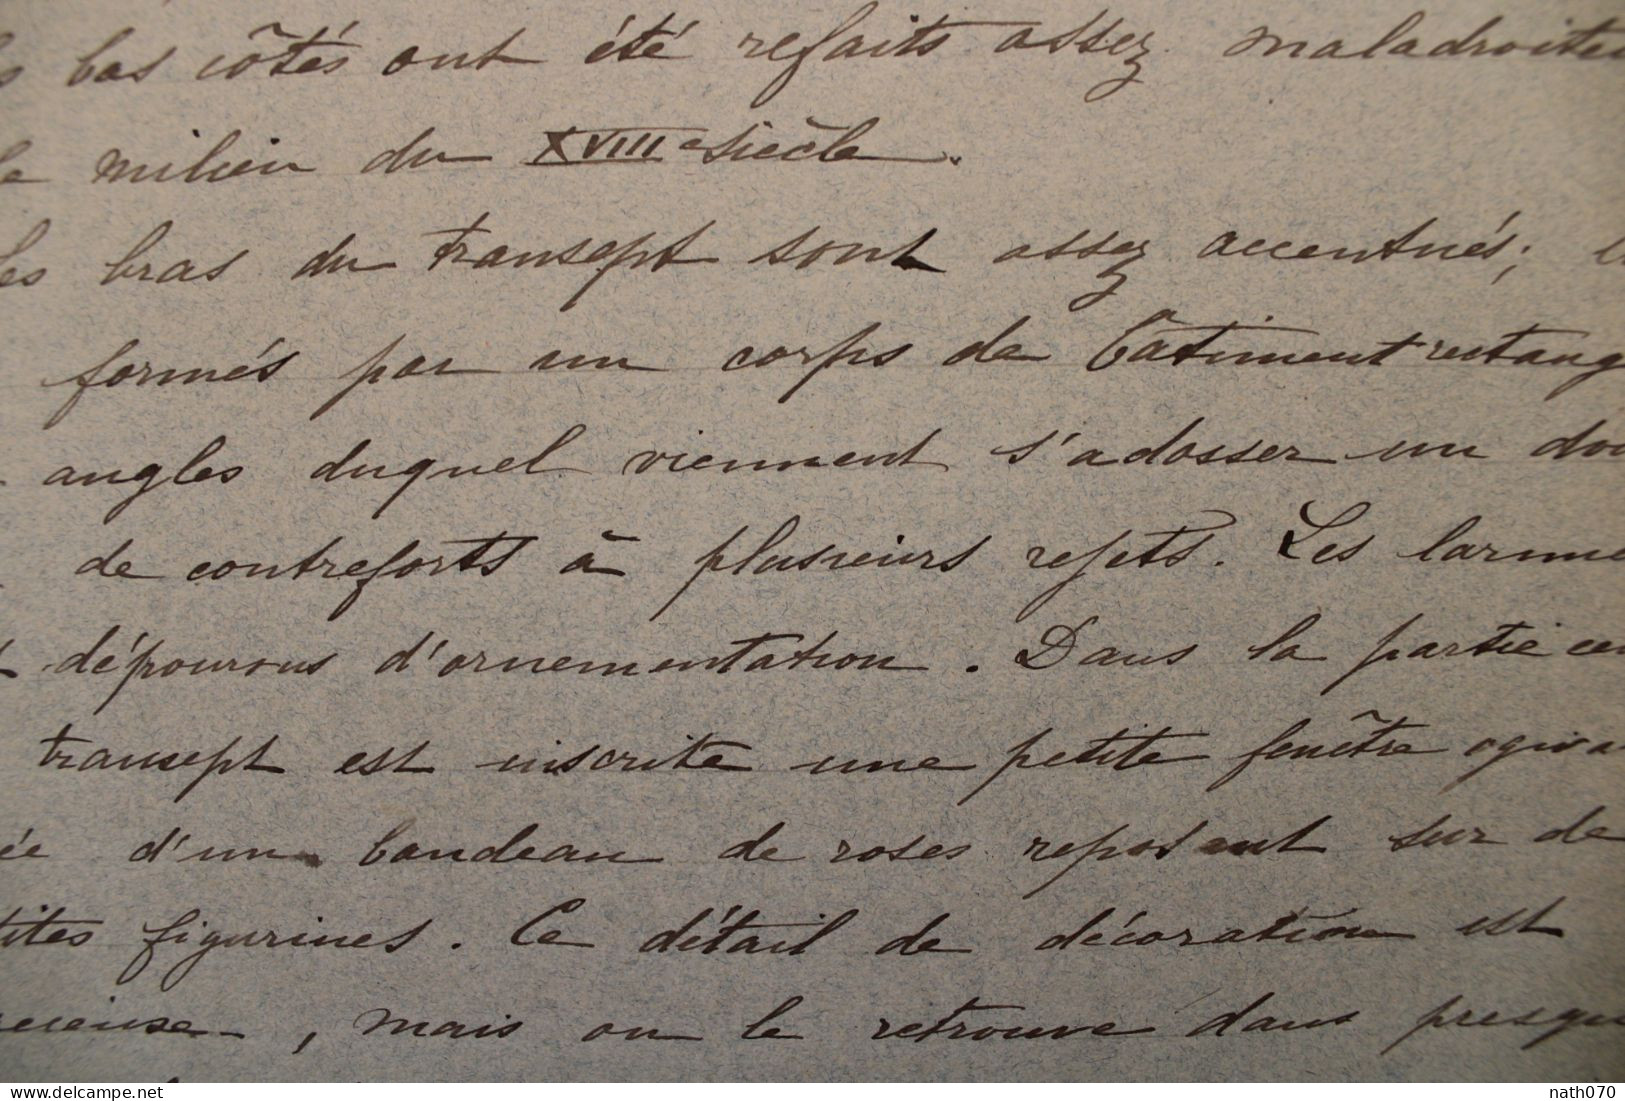 bas côtés ont été refaits assez maladroite
milieu du XVIIIe siècle.
les bras du transept sont assez accentués;
formés par un corps de bâtiment rectang
angles duquel viennent s'adosser un dou
de contreforts à plusieurs rejets. Les larmie
dépourvus d'ornementation. Dans la partie cen
transept est inscrite une petite fenêtre ogiva
ée d'un bandeau de roses reposant sur de
tites figurines. Ce détail de décoration est
, mais on le retrouve dans presqu
delcampe.net
nath070